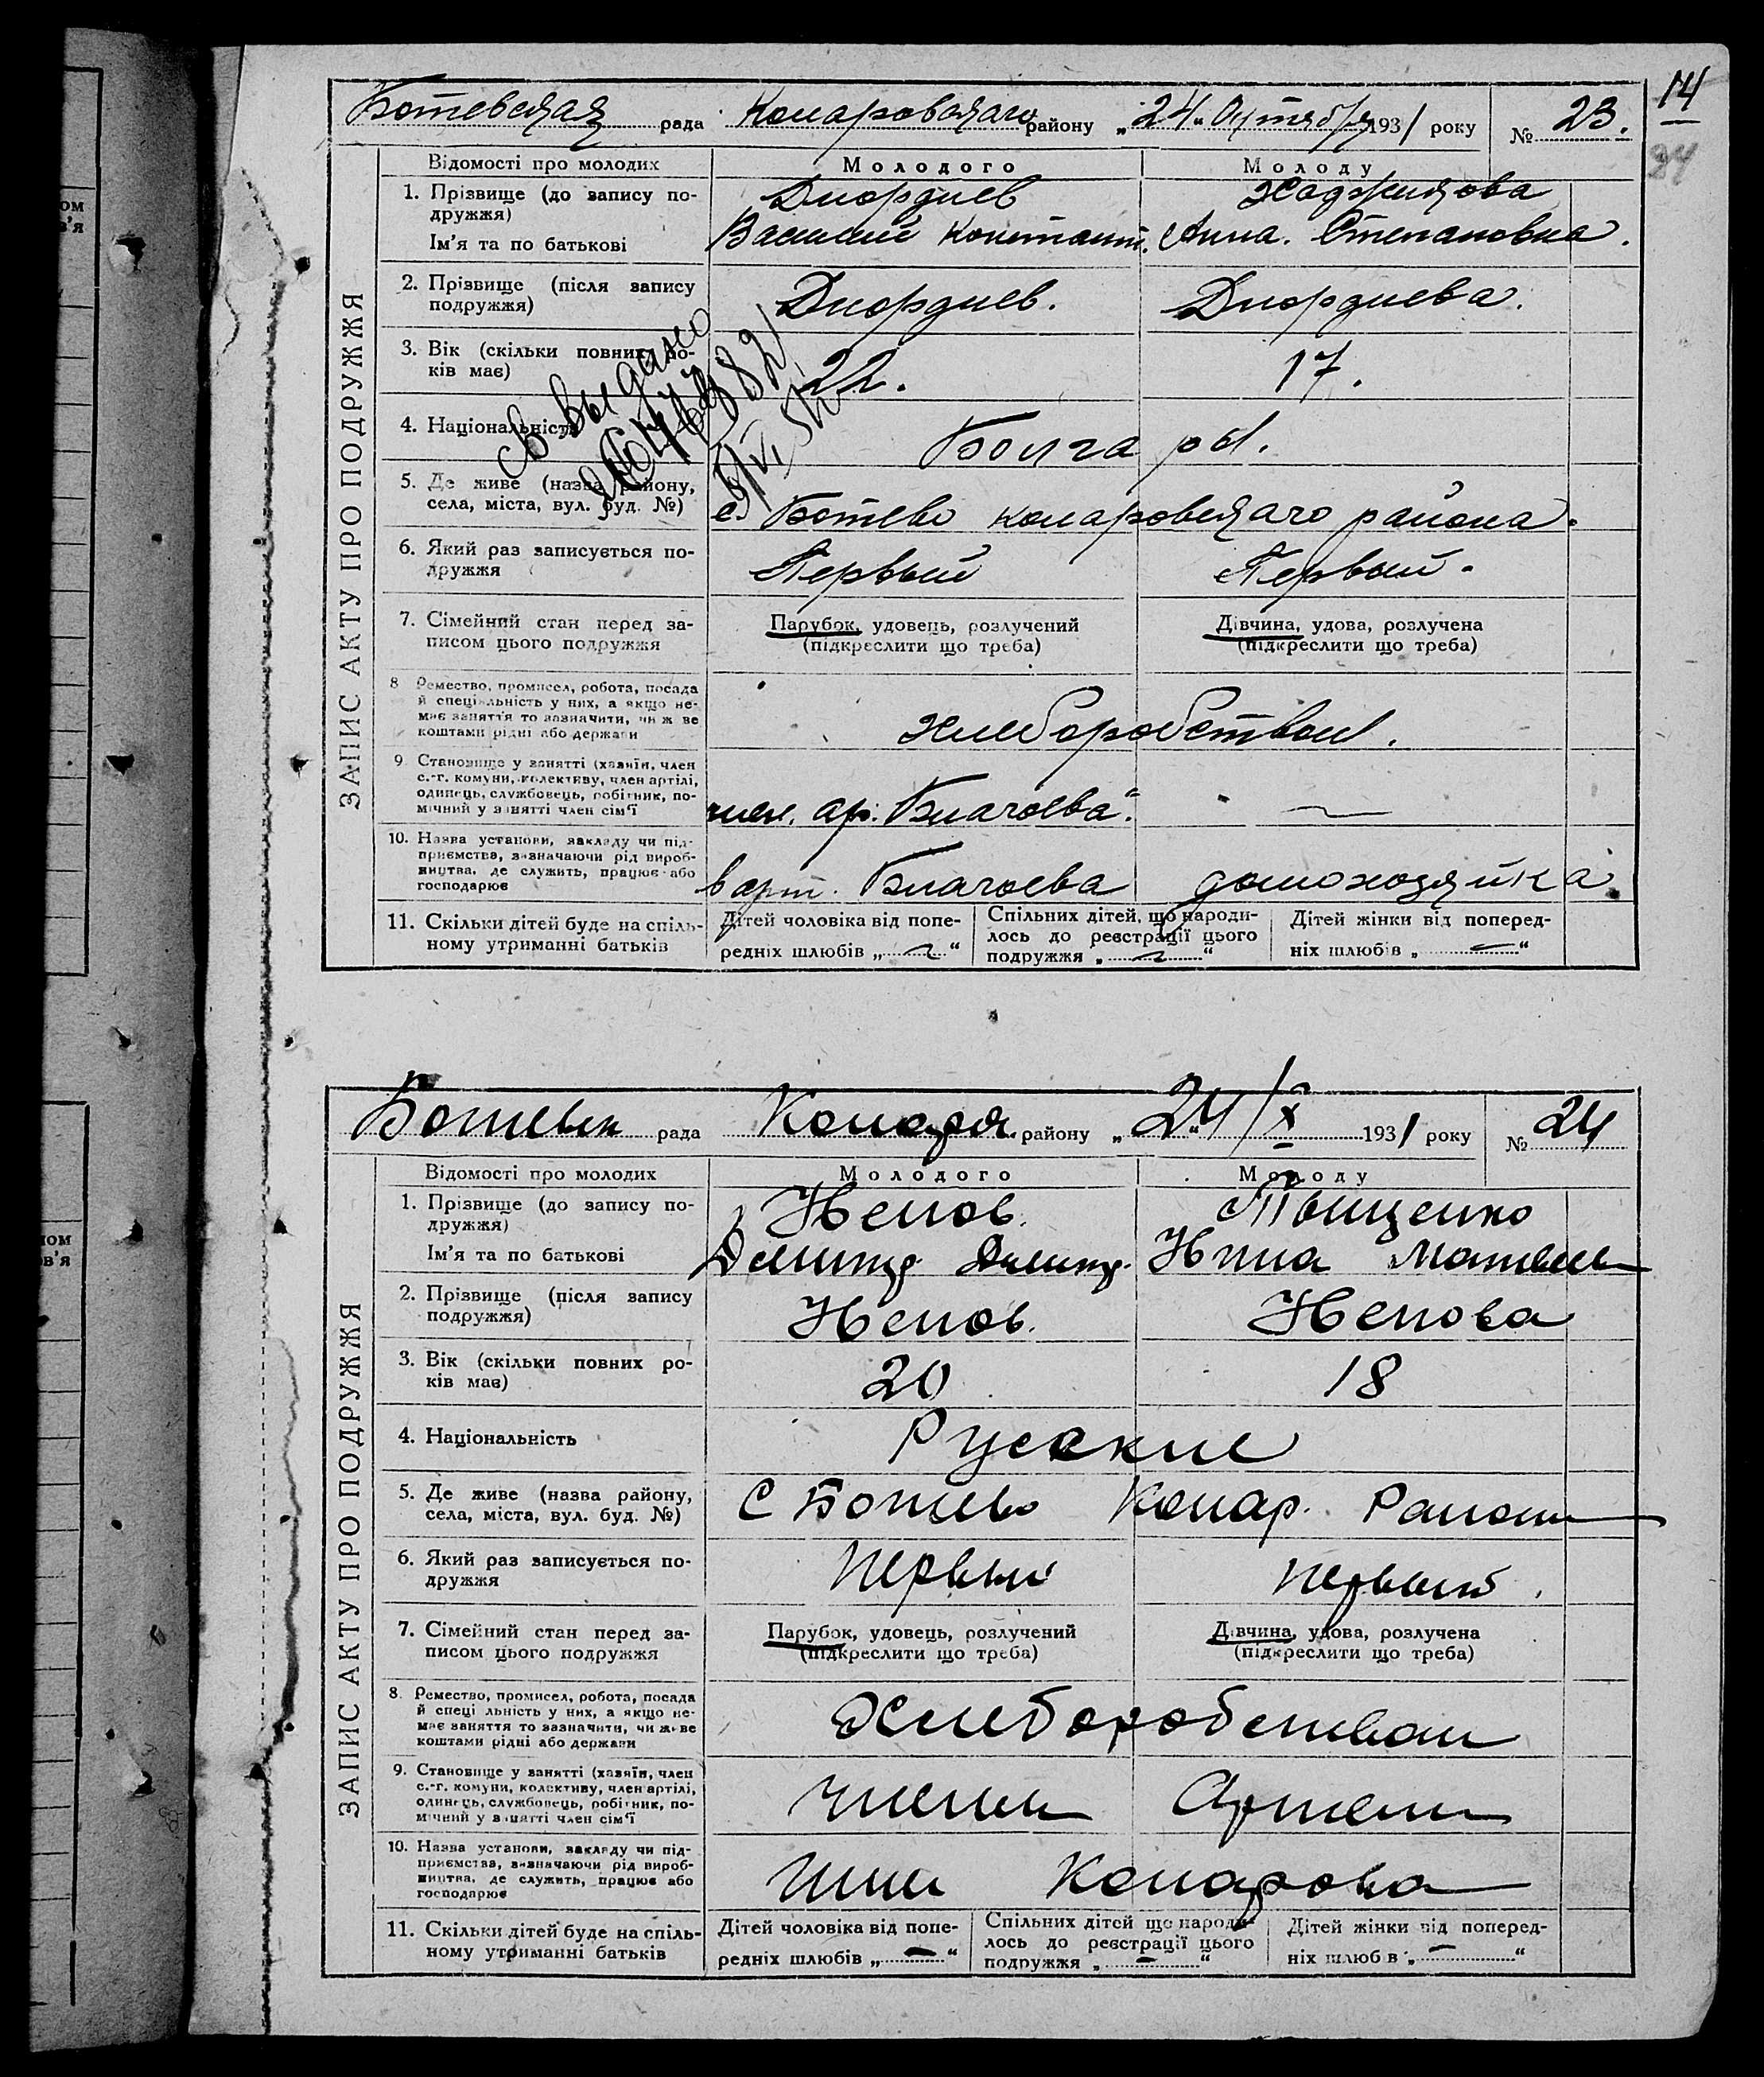 14
24
Ботевская рада Коларовского району „24„ Октября 1931 року № 23.
ЗАПИС АКТУ ПРО ПОДРУЖЖЯ
Відомості про молодих Молодого Молоду
1. Прізвище (до запису по- Диордиев Хаджинова
дружжя)
Ім'я та по батькові Василий Констант. Анна. Степановна.
2. Прізвище (після запису Диордиев. Диордиева.
подружжя)
3. Вік (скільки повних ро- 22. 17.
ків має)
4. Національність Болгары.
св выдано
5. Де живе (назва району,
села, міста, вул. буд. №) с. Ботево коларовского района.
6. Який раз записується по- Первый Первый.
дружжя
7. Сімейний стан перед за- Парубок, удовець, розлучений Дівчина, удова, розлучена
писом цього подружжя (підкреслити що треба) (підкреслити що треба)
8 Ремество, промисел, робота, посада
й спеціальність у них, а якщо не-
має заняття то зазначити, чи ж ве хлеборобством.
коштами рідні або держави
9 Становище у занятті (хазяїн, член
с.-г. комуни, колективу, член артілі,
одинець, службовець, робітник, по-
мічний у занятті член сім'ї член. ар. Благоева". —
10. Назва установи, закладу чи під-
приємства, зазначаючи рід вироб-
ництва, де служить, працює або
господарює в арт. Благоева домохозяйка.
11. Скільки дітей буде на спіль- Дітей чоловіка від попе- Спільних дітей, що народи- Дітей жінки від поперед-
ному утриманні батьків редніх шлюбів „—“ лось до реєстрації цього ніх шлюбів „—“
подружжя „—“
рада району „24/X 1931 року № 24
ЗАПИС АКТУ ПРО ПОДРУЖЖЯ
Відомості про молодих Молодого Молоду
1. Прізвище (до запису по- Ненов
дружжя)
Ім'я та по батькові Дмитр. Дмитр. Нина
2. Прізвище (після запису Ненов. Ненова
подружжя)
3. Вік (скільки повних ро- 20 18
ків має)
4. Національність Русские
5. Де живе (назва району, С Ботево Колар. Района
села, міста, вул. буд. №)
6. Який раз записується по- Первый Первый.
дружжя
7. Сімейний стан перед за- Парубок, удовець, розлучений Дівчина, удова, розлучена
писом цього подружжя (підкреслити що треба) (підкреслити що треба)
8. Ремество, промисел, робота, посада
й спеціальність у них, а якщо не- Хлеборобством
має заняття то зазначити, чи живе
коштами рідні або держави
9. Становище у занятті (хазяїн, член
с.-г. комуни, колективу, член артілі, члены Артели
одинець, службовець, робітник, по-
мічний у занятті член сім'ї
10. Назва установи, закладу чи під-
приємства, зазначаючи рід вироб- Коларова
ництва, де служить, працює або
господарює
11. Скільки дітей буде на спіль- Дітей чоловіка від попе- Спільних дітей що народи- Дітей жінки від поперед-
ному утриманні батьків редніх шлюбів „—“ лось до реєстрації цього ніх шлюбів „—“
подружжя „—“